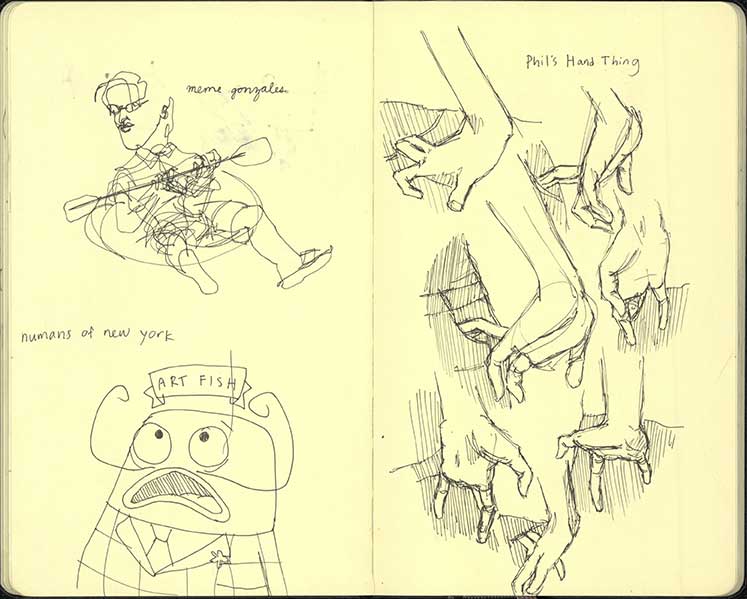 meme gonzales
numans of new york
ART FISH
Phil's Hand Thing